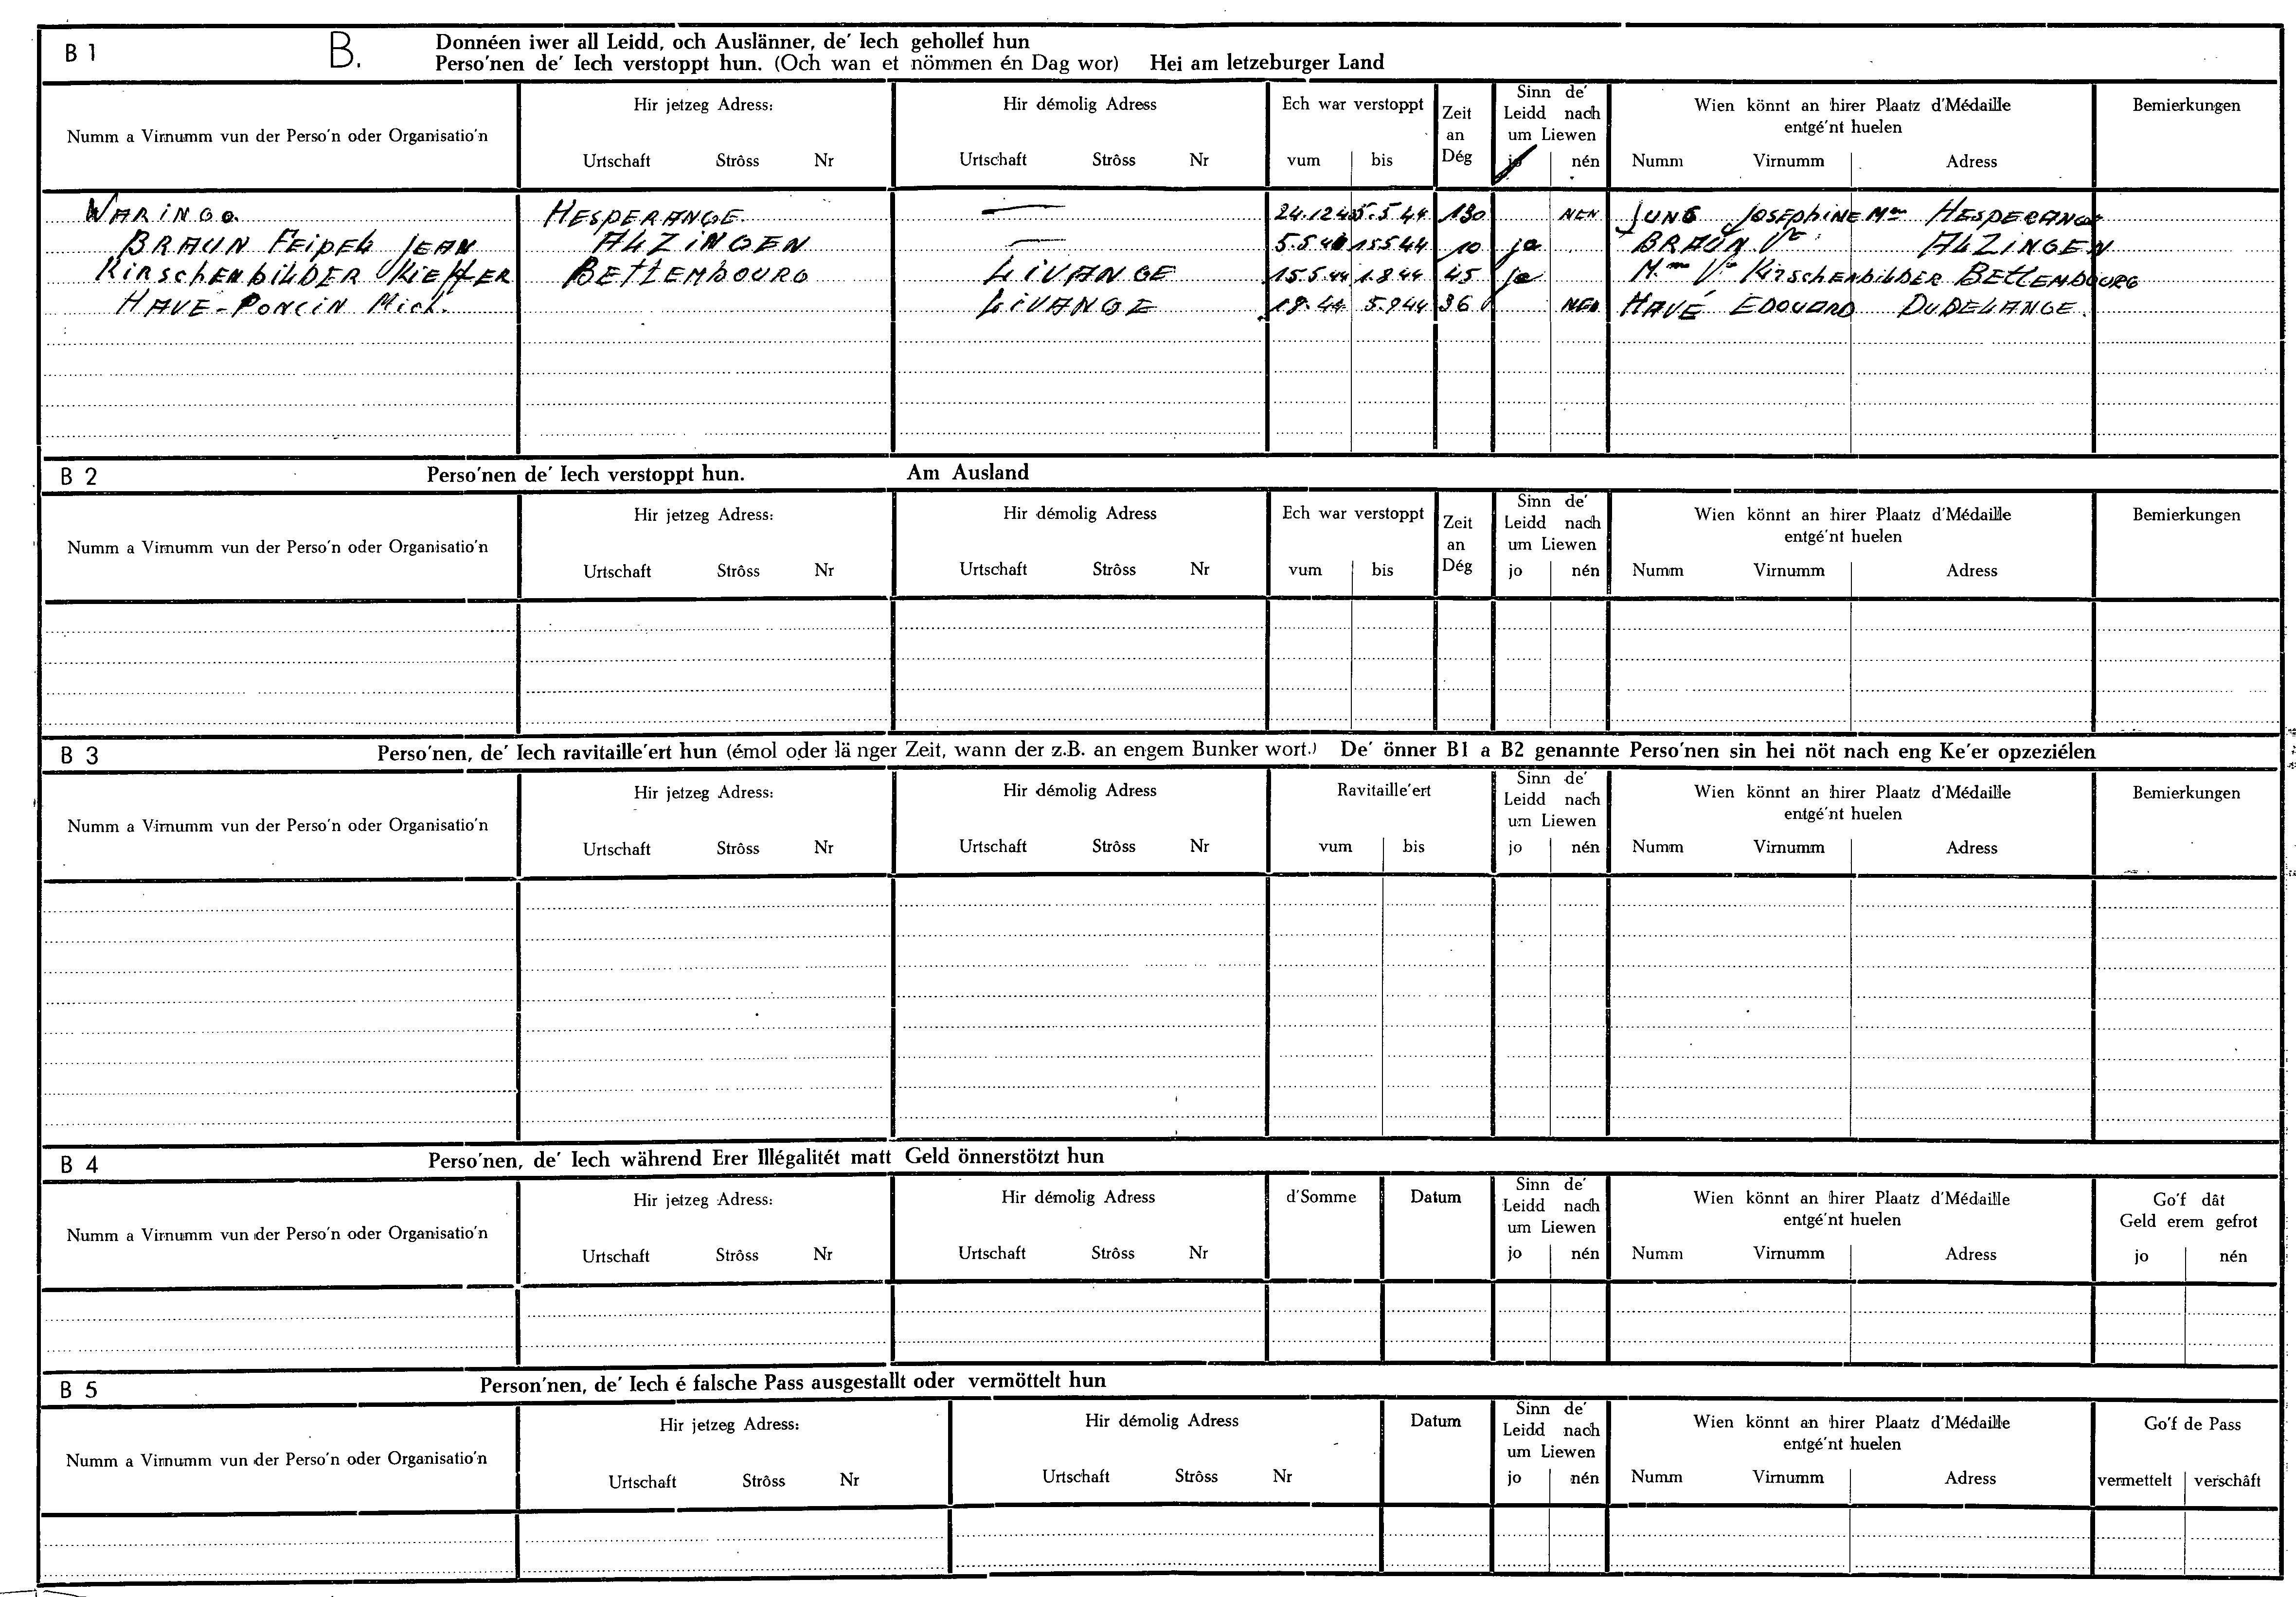 B 1 B. Donnéen iwer all Leidd, och Auslänner, de' Iech gehollef hun
Perso'nen de' Iech verstoppt hun. (Och wan et nömmen én Dag wor) Hei am letzeburger Land
Numm a Virnumm vun der Perso'n oder Organisatio'n
Hir jetzeg Adress:
Urtschaft Strôss Nr
Hir démolig Adress
Urtschaft Strôss Nr
Ech war verstoppt
vum bis
Zeit
an
Dég
Sinn de'
Leidd nach
um Liewen
jo nén
Wien könnt an hirer Plaatz d'Médaille
entgé'nt huelen
Numm Virnumm Adress
Bemierkungen
WARINGO HESPERANGE — 24.12.43 5.5.44 130 NEN JUNG JOSEPHINE Mme HESPERANGE
BRAUN FEIPEL JEAN ALZINGEN — 5.5.44 15.5.44 10 ja BRAUN Ve ALZINGEN
KIRSCHENBILDER KIEFFER BETTEMBOURG LIVANGE 15.5.44 1.8.44 45 ja Mme Ve KIRSCHENBILDER BETTEMBOURG
HAVE-PONCIN Mich. LIVANGE 1.8.44 5.9.44 36 NEN HAVÉ EDOUARD DUDELANGE
B 2 Perso'nen de' Iech verstoppt hun. Am Ausland
Numm a Virnumm vun der Perso'n oder Organisatio'n
Hir jetzeg Adress:
Urtschaft Strôss Nr
Hir démolig Adress
Urtschaft Strôss Nr
Ech war verstoppt
vum bis
Zeit
an
Dég
Sinn de'
Leidd nach
um Liewen
jo nén
Wien könnt an hirer Plaatz d'Médaille
entgé'nt huelen
Numm Virnumm Adress
Bemierkungen
B 3 Perso'nen, de' Iech ravitaille'ert hun (émol oder länger Zeit, wann der z.B. an engem Bunker wort.) De' önner B1 a B2 genannte Perso'nen sin hei nöt nach eng Ke'er opzeziélen
Numm a Virnumm vun der Perso'n oder Organisatio'n
Hir jetzeg Adress:
Urtschaft Strôss Nr
Hir démolig Adress
Urtschaft Strôss Nr
Ravitaille'ert
vum bis
Sinn de'
Leidd nach
um Liewen
jo nén
Wien könnt an hirer Plaatz d'Médaille
entgé'nt huelen
Numm Virnumm Adress
Bemierkungen
B 4 Perso'nen, de' Iech während Erer Illégalitét matt Geld önnerstötzt hun
Numm a Virnumm vun der Perso'n oder Organisatio'n
Hir jetzeg Adress:
Urtschaft Strôss Nr
Hir démolig Adress
Urtschaft Strôss Nr
d'Somme
Datum
Sinn de'
Leidd nach
um Liewen
jo nén
Wien könnt an hirer Plaatz d'Médaille
entgé'nt huelen
Numm Virnumm Adress
Go'f dât
Geld erem gefrot
jo nén
B 5 Person'nen, de' Iech é falsche Pass ausgestallt oder vermöttelt hun
Numm a Virnumm vun der Perso'n oder Organisatio'n
Hir jetzeg Adress:
Urtschaft Strôss Nr
Hir démolig Adress
Urtschaft Strôss Nr
Datum
Sinn de'
Leidd nach
um Liewen
jo nén
Wien könnt an hirer Plaatz d'Médaille
entgé'nt huelen
Numm Virnumm Adress
Go'f de Pass
vermettelt verschâft